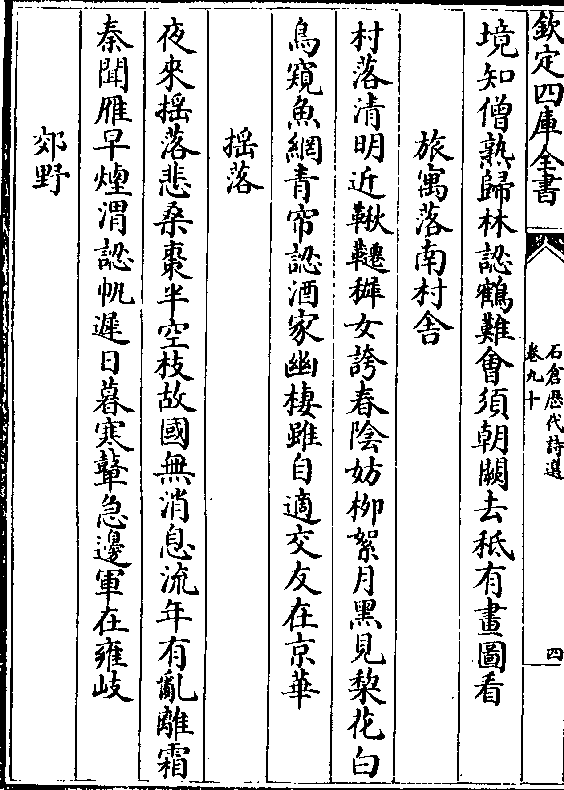 欽定四庫全書
石倉歷代詩選
卷九十
四
境知僧熟歸林認鶴難會須朝闕去秪有畫圖看
旅寓落南村舍
村落清明近鞦韆稺女誇春陰妨栁絮月黑見棃花白
鳥窺魚網青帘認酒家幽棲雖自適交友在京華
揺落
夜來揺落悲桑棗半空枝故國無消息流年有亂離霜
秦聞雁早煙渭認帆遲日暮寒鼙急邊軍在雍岐
郊野